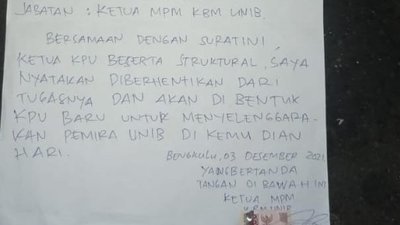 JABATAN : KETUA MPM KBM UNIB.
BERSAMAAN DENGAN SURAT INI,
KETUA KPU BESERTA STRUKTURAL, SAYA
NYATAKAN DIBERHENTIKAN DARI
TUGASNYA DAN AKAN DI BENTUK
KPU BARU UNTUK MENYELENGGARA-
KAN PEMIRA UNIB DI KEMUDIAN
HARI.
BENGKULU, 03 DESEMBER 2021
YANG BERTANDA
TANGAN DI BAWAH INI
KETUA MPM
KBM UNIB